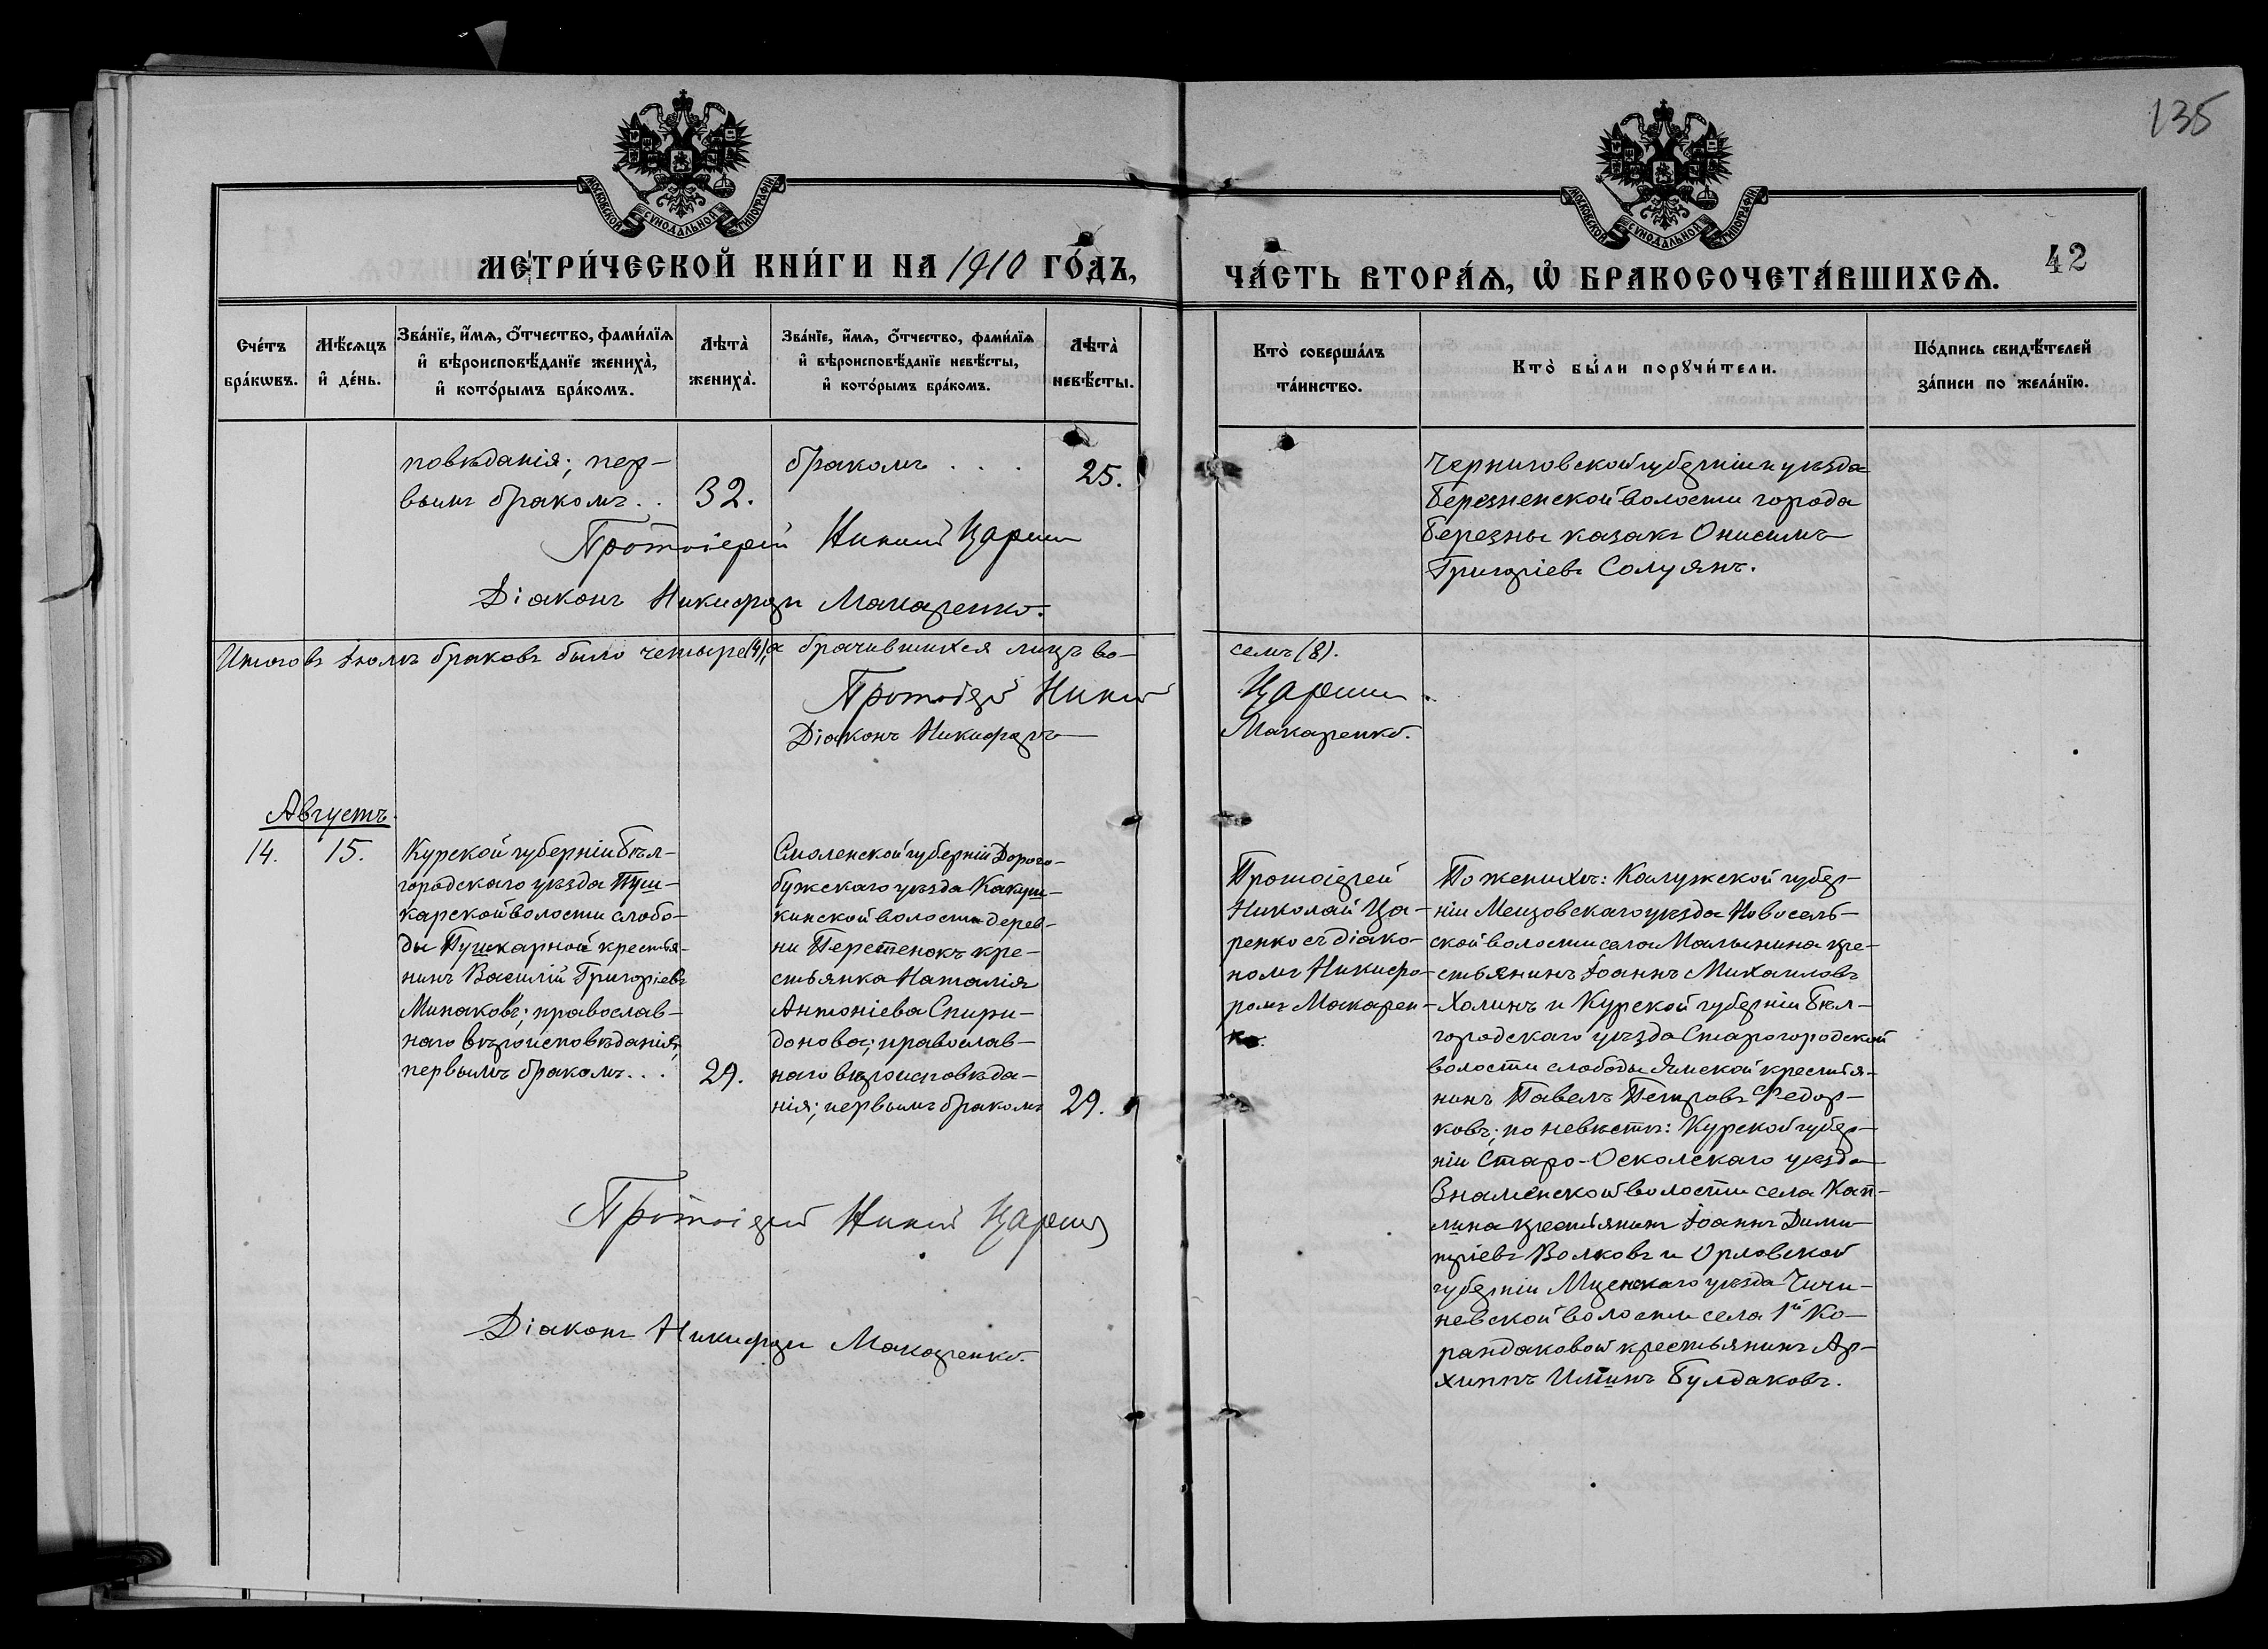 135
МОСКОВСКОЙ СѴНОДАЛЬНОЙ ТИПОГРАФІИ
МОСКОВСКОЙ СѴНОДАЛЬНОЙ ТИПОГРАФІИ
МЕТРИ́ЧЕСКОЙ КНИ́ГИ НА 1910 ГО́ДЪ,
ЧА́СТЬ ВТОРА́Ѧ, Ѡ҆ БРАКОСОЧЕТА́ВШИХСѦ. 42
Сче́тъ
бра́кѡвъ.
Мѣ́сѧцъ
и҆ де́нь.
Зва́нїе, и҆́мѧ, ѻ҆́тчество, фами́лїѧ
и҆ вѣроисповѣ́данїе жениха̀,
и҆ кото́рымъ бра́комъ.
Лѣта̀
жениха̀.
Зва́нїе, и҆́мѧ, ѻ҆́тчество, фами́лїѧ
и҆ вѣроисповѣ́данїе невѣ́сты,
и҆ кото́рымъ бра́комъ.
Лѣта̀
невѣ́сты.
Кто̀ соверша́лъ
та́инство.
Кто̀ бы́ли порꙋчи́тели.
По́дпись свидѣ́телей
за́писи по жела́нїю.
повѣданія; пер-
вымъ бракомъ . .
32.
бракомъ . . .
25.
Черниговской губерніи и уѣзда
Березненской волости города
Березны казакъ Онисимъ
Григоріевъ Солуянъ.
Протоіерей
Діаконъ Никифоръ Макаренко.
Итого въ Іюлѣ браковъ было четыре (4), а брачившихся лицъ во-
семъ (8).
Протоіерей
Діаконъ Никифоръ
Макаренко.
Августъ.
14. 15.
Курской губерніи Бѣл-
городскаго уѣзда Пуш-
карской волости слобо-
ды Пушкарной крестья-
нинъ Василій Григоріевъ
Минаковъ; православ-
наго вѣроисповѣданія,
первымъ бракомъ . . .
29.
Смоленской губерніи Дорого-
бужскаго уѣзда Какуш-
кинской волости дерев-
ни Перстенокъ кре-
стьянка Наталія
Антоніева Спири-
донова; православ-
наго вѣроисповѣда-
нія; первымъ бракомъ
29.
Протоіерей
Николай Ца-
ренко съ діако-
номъ Никифо-
ромъ Макарен-
ко.
По женихѣ: Калужской губер-
ніи Мещовскаго уѣзда Новосель-
ской волости села Малынина кре-
стьянинъ Іоаннъ Михаиловъ
Холинъ и Курской губерніи Бѣл-
городскаго уѣзда Старогородской
волости слободы Ямской крестья-
нинъ Павелъ Петровъ Федор-
ковъ; по невѣстѣ: Курской губер-
ніи Старо-Оскольскаго уѣзда
Знаменской волости села Кап-
лина крестьянинъ Іоаннъ Дими-
тріевъ Волковъ и Орловской
губерніи Мценскаго уѣзда
невской волости села 1й Ка-
рандаковой крестьянинъ Ар-
хиппъ Булдаковъ.
Протоіерей
Діаконъ Никифоръ Макаренко.